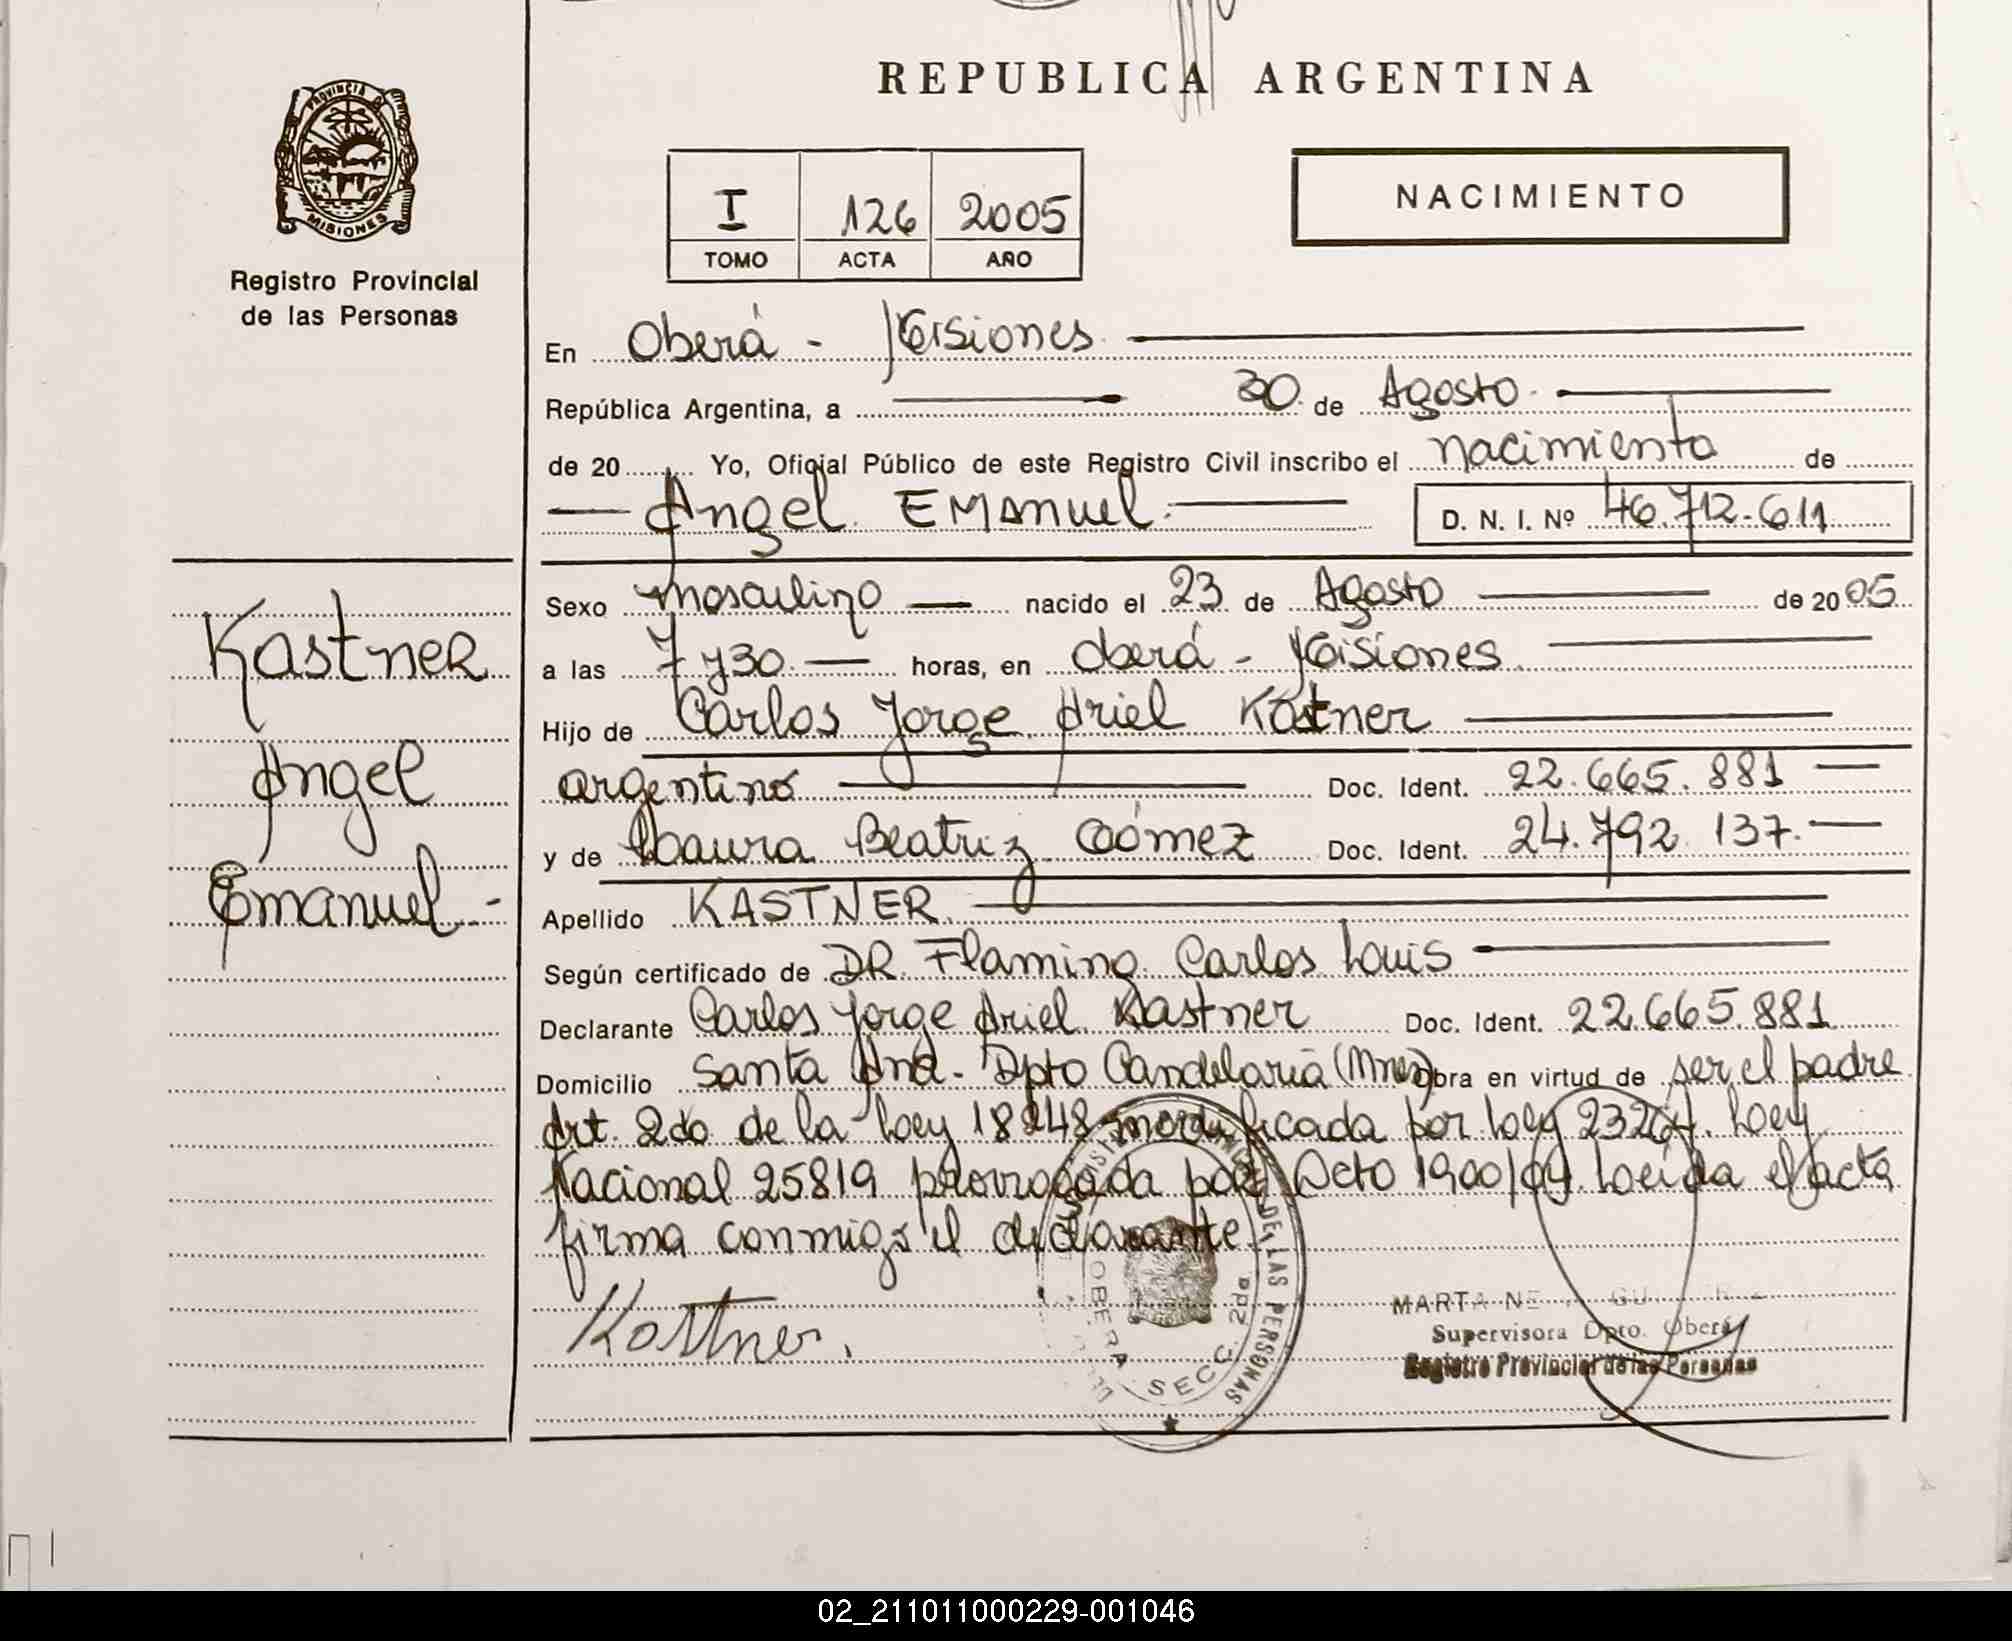 REPUBLICA ARGENTINA
PROVINCIA DE MISIONES
Registro Provincial
de las Personas
I 126 2005
TOMO ACTA AÑO
NACIMIENTO
En Oberá - Misiones
República Argentina, a 30 de Agosto
de 20 Yo, Oficial Público de este Registro Civil inscribo el nacimiento de
Angel Emanuel D. N. I. Nº 46.712.611
Sexo masculino nacido el 23 de Agosto de 2005
a las 7 y 30 horas, en Oberá - Misiones
Hijo de Carlos Jorge Ariel Kastner
argentino Doc. Ident. 22.665.881
y de Laura Beatriz Gómez Doc. Ident. 24.792.137.
Apellido KASTNER
Según certificado de DR. Flamino Carlos Luis
Declarante Carlos Jorge Ariel Kastner Doc. Ident. 22.665.881
Domicilio Santa Ana - Dpto Candelaria (Mnes) obra en virtud de ser el padre
Art. 2do de la Ley 18248 modificada por Ley 23264. Ley
Nacional 25819 prorrogada por Dcto 1900/04. Leída el acta
firma conmigo el declarante.
Kastner
Angel
Emanuel -
Kastner.
DE LAS PERSONAS
OBERA SECC. 2da.
MARTA
Supervisora Dpto. Oberá
Registro Provincial de las Personas
02_211011000229-001046